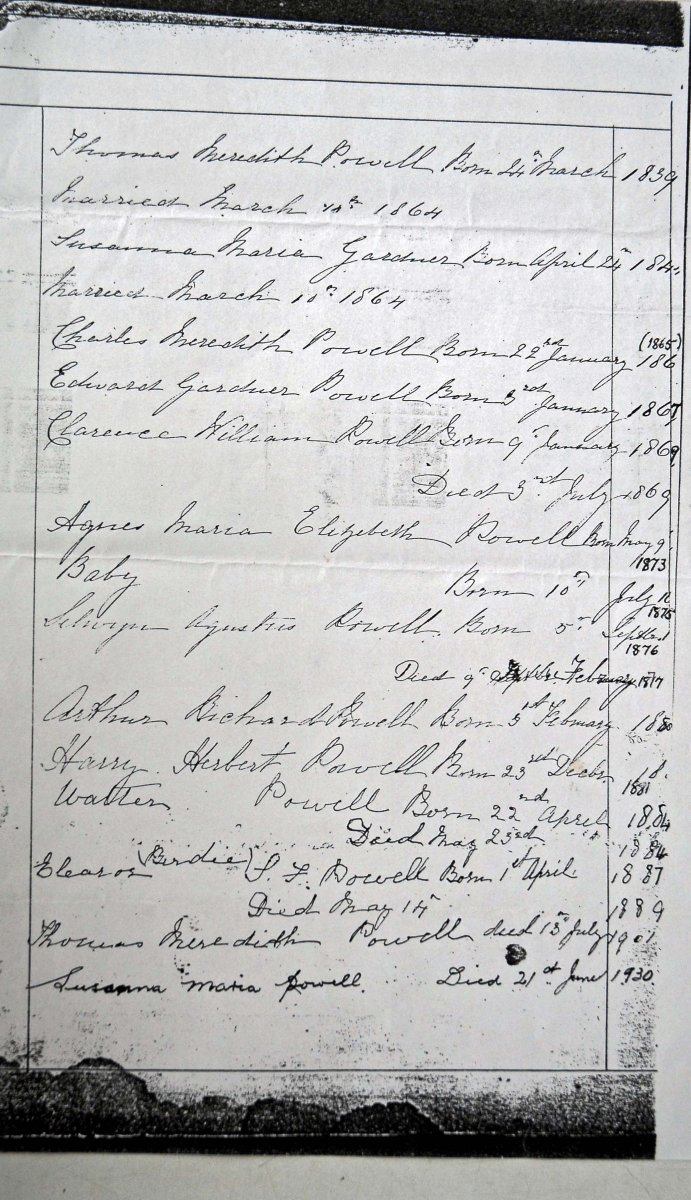 Thomas Meredith Powell Born 24th March 1839
Married March 10th 1864
Susanna Maria Gardner Born April 24th 184
Married March 10th 1864
Charles Meredith Powell Born 22nd January 186 (1865)
Edward Gardner Powell Born 3rd January 1867
Clarence William Powell Born 9th January 1869
Died 3rd July 1869
Agnes Maria Elizebeth Powell Born May 9th
1873
Baby Born 10th July
1875
Selwyn Agustus Powell. Born 5th
1876
Died 9th February 1877
Arthur Richard Powell Born 5th February 1880
Harry Herbert Powell Born 23rd Decbr. 18
1881
Walter Powell Born 22nd April 1884
Died May 23rd 1884
Eleanor (Birdie) S. F. Powell Born 1st April 1887
Died May 14th 1889
Thomas Meredith Powell died 13th July 1901
Susanna Maria Powell. Died 21st June 1930